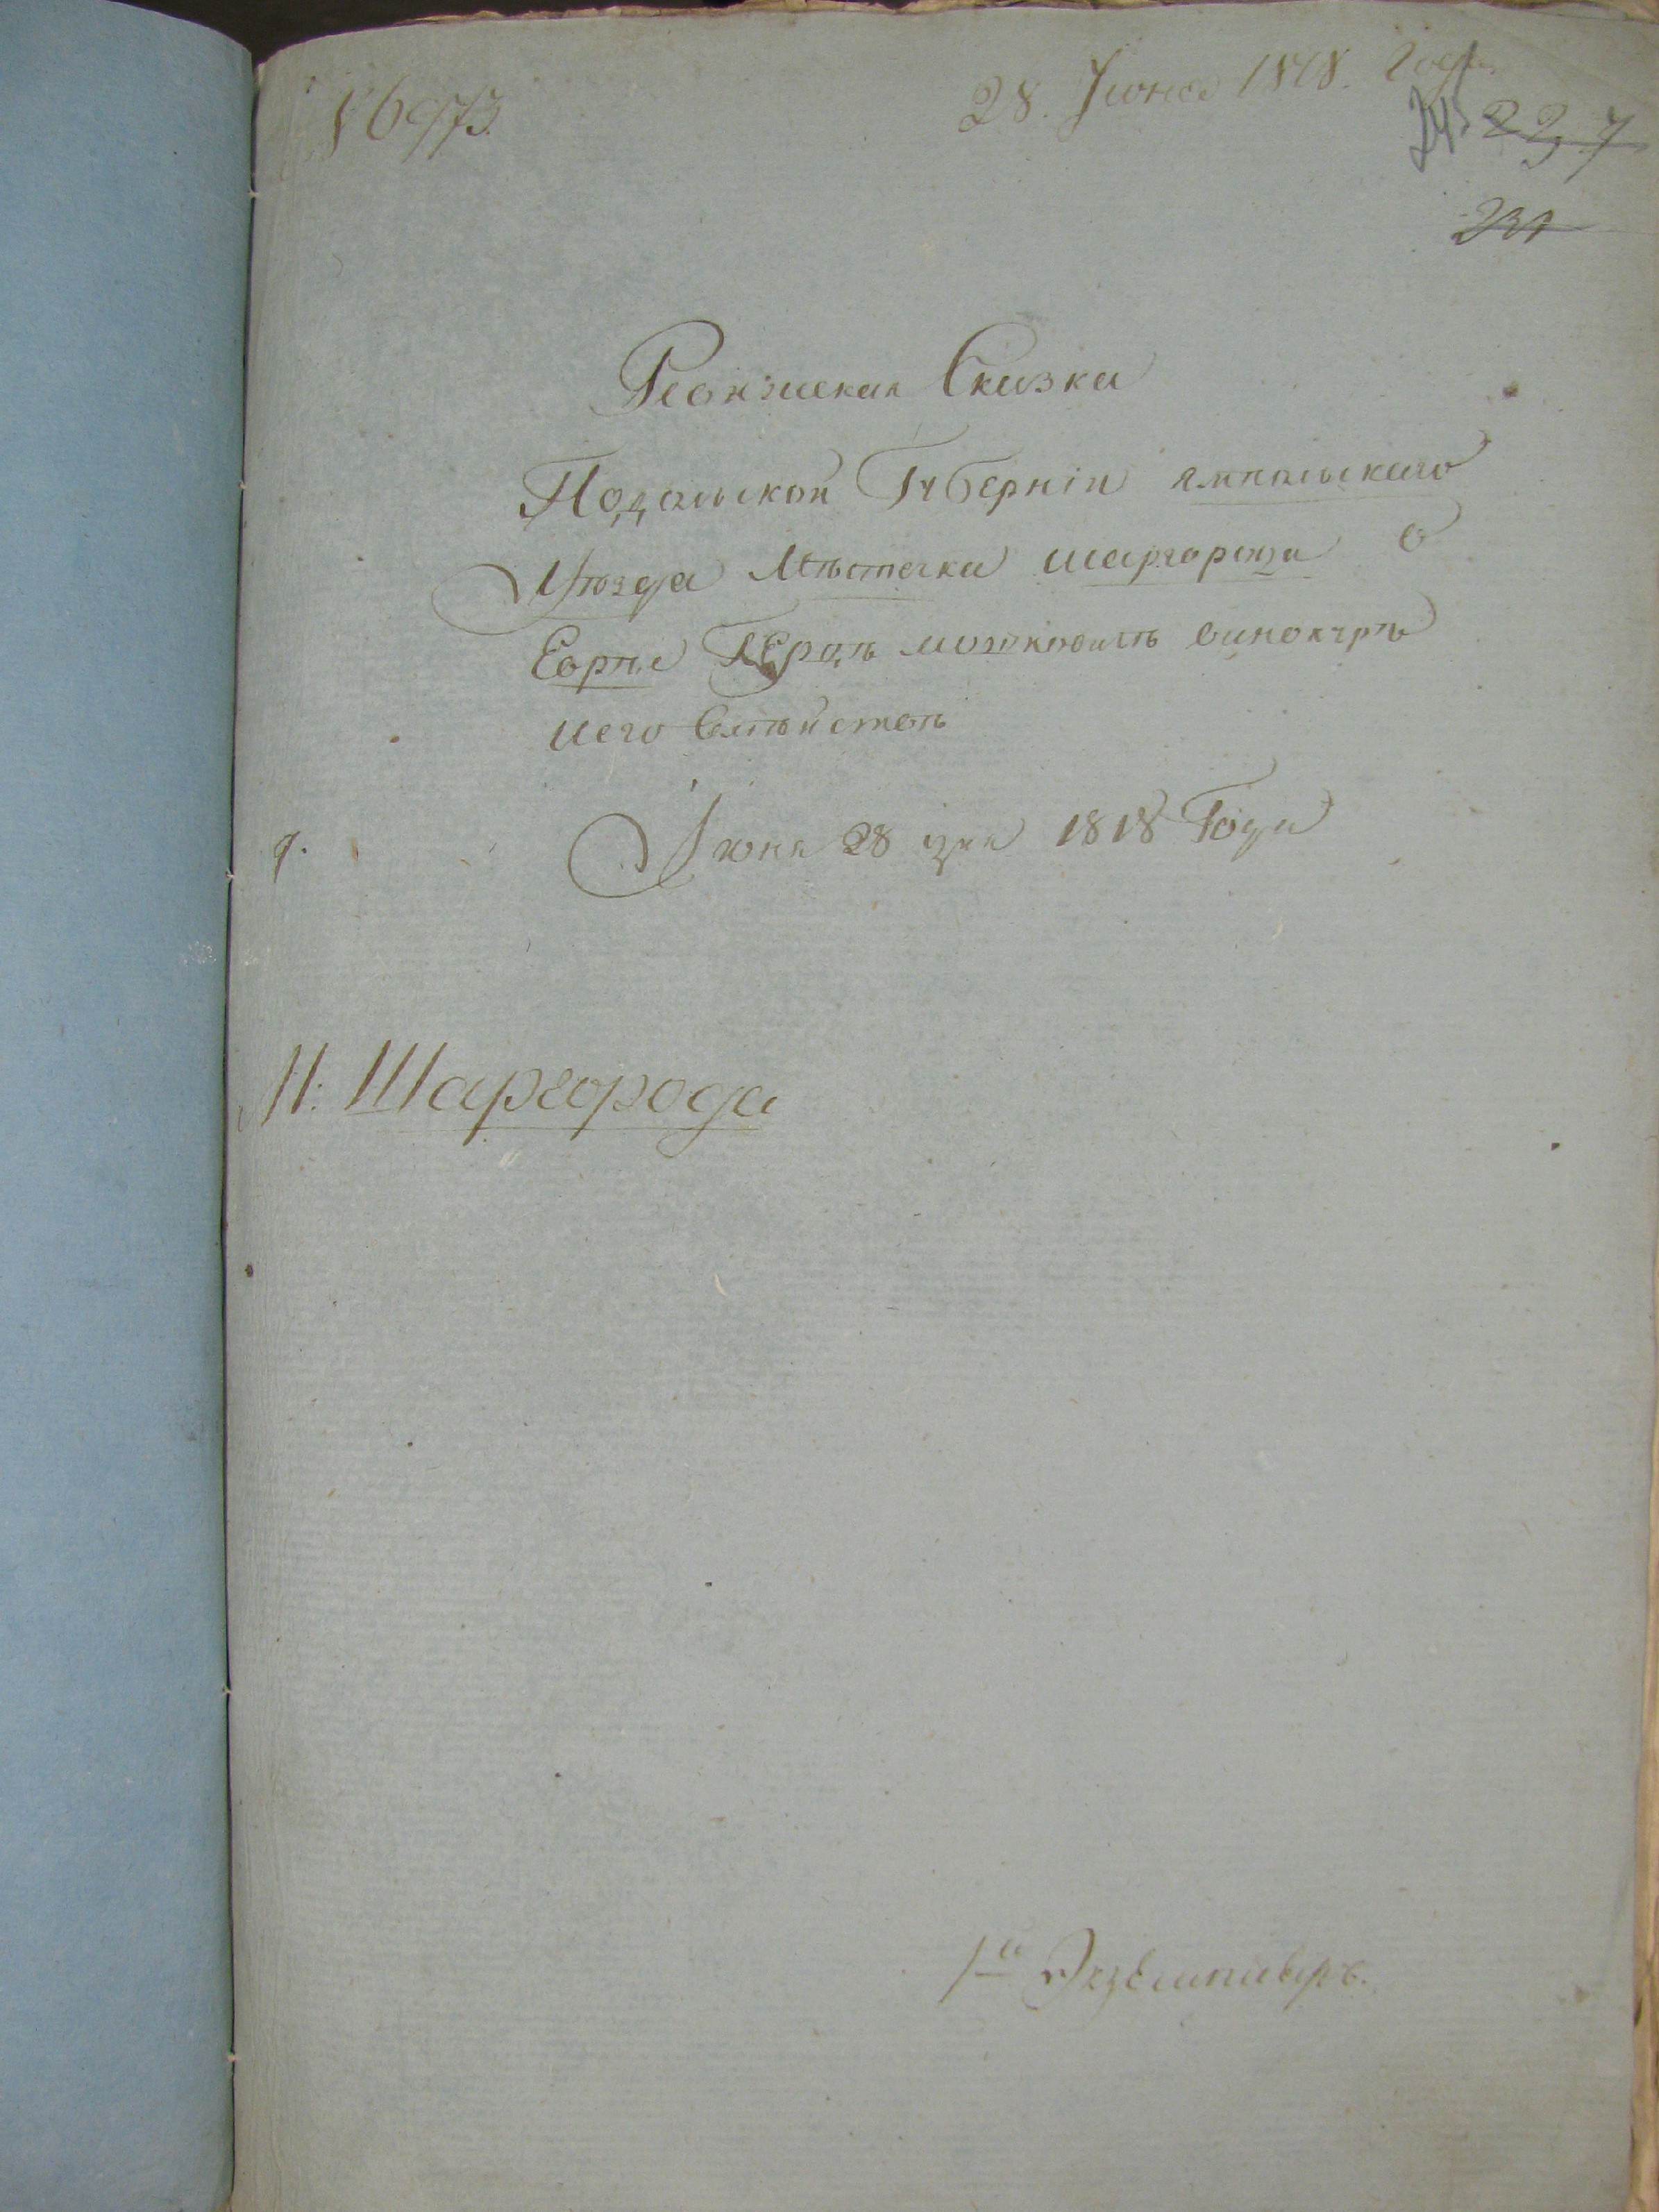 16973.
28. Июня 1818. Года
237
231
Ревизская Сказка
Подолской Губерніи ямполскаго
Уюзда Мѣстечка шаргорода о
Еврѣе Герцъ мошковичъ винокуръ
иего Семѣйствѣ
Іюня 28 дня 1818 Года
М: Шаргорода
1й Экземпляръ.